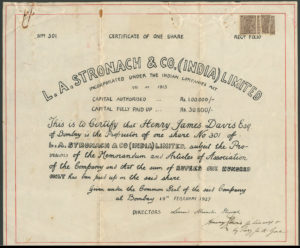 No 301 CERTIFICATE OF ONE SHARE REGT FOLIO
L. A. STRONACH & CO. (INDIA) LIMITED
INCORPORATED UNDER THE INDIAN COMPANIES ACT
VII OF 1913
CAPITAL AUTHORISED ... Rs. 1,00,000/-
CAPITAL FULLY PAID UP ... Rs. 30,500/-
This is to Certify that Henry James Davis Esq
of Bombay is the Proprietor of one share No 301 of
L. A. STRONACH & CO (INDIA) LIMITED, subject the Pro-
visions of the Memorandum and Articles of Association
of the Company and that the sum of RUPEES ONE HUNDRED
ONLY has been paid up on the said share
Given under the Common Seal of the said Company
at Bombay 19th FEBRUARY 1927
DIRECTORS